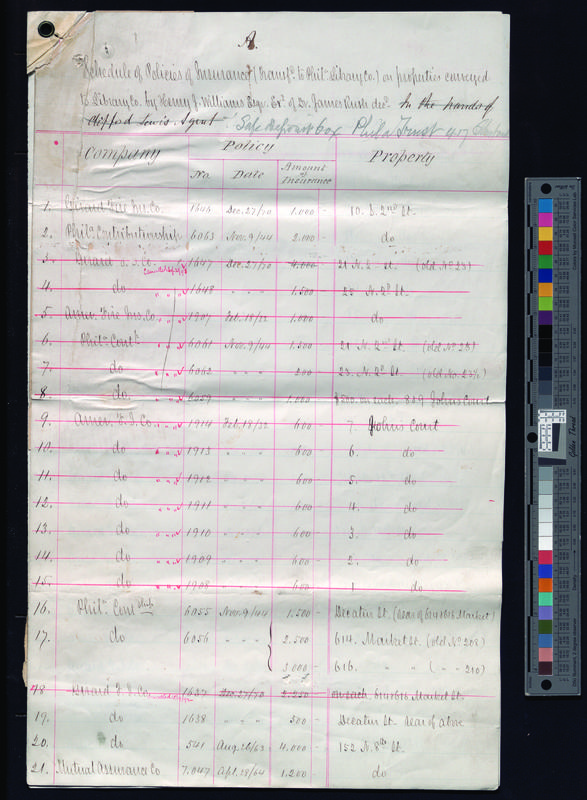 A.
Schedule of Policies of Insurance (transf.d to Phila Library Co.) on properties conveyed
to Library Co. by Henry J. Williams Esqr. Exr. of Dr. James Rush decd. In the hands of
Clifford Lewis. Agent Safe deposit box Phila Trust 417 Chestnut
Company Policy No. Date Amount of Insurance Property
1. Girard Fire Ins. Co. 1646 Dec. 27/70 1.000 - 10. S. 2nd St.
2. Phila Contributionship 6063 Nov. 9/44 2.000 do
3. Girard F. I. Co. 1647 Dec. 27/70 4.000 21 N. 2nd St. (old No 23)
4. do 1648 " " " 1.500 23 N. 2d St.
5. Amer. Fire Ins. Co. 1907 Feb. 18/32 1.000 do
6. Phila Cont. 6061 Nov. 9/44 1.500 21 N. 2nd St. (old No 23)
7. do 6062 " " " 200 23. N. 2d St. (old No. 23½)
8. do. 6059 " " " 1.000 $500. on each. 8 & 9 Johns Court
9. Amer. F. I. Co 1914 Feb. 18/32 600 7. Johns Court
10. do 1913 " " " 600 6. do
11. do 1912 " " " 600 5. do
12. do 1911 " " " 600 4. do
13. do 1910 " " " 600 3. do
14. do 1909 " " " 600 2. do
15. do 1908 " " " 600 1 do
16. Phila Contship 6055 Nov. 9/44 1.500 - Decatur St. (rear of 614 & 616 Market)
17. do 6056 " " " 2.500 614. Market St. (old No 208)
3 000 616. " " ( " " 210)
18 Girard F. I. Co. 1637 Dec. 27/70 2.250 on each 614 & 616 Market St.
19. do 1638 " " " 500 Decatur St. rear of above
20. do 541 Aug. 26/63 4.000 - 152 N. 8th St.
21. Mutual Assurance Co 7.047 Apl. 28/64 1.200 do